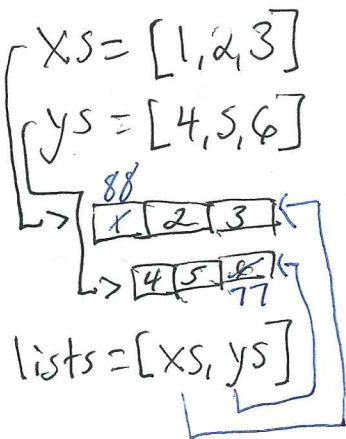 xs = [1,2,3]
ys = [4,5,6]
88
1 2 3
4 5 6
77
lists = [xs, ys]